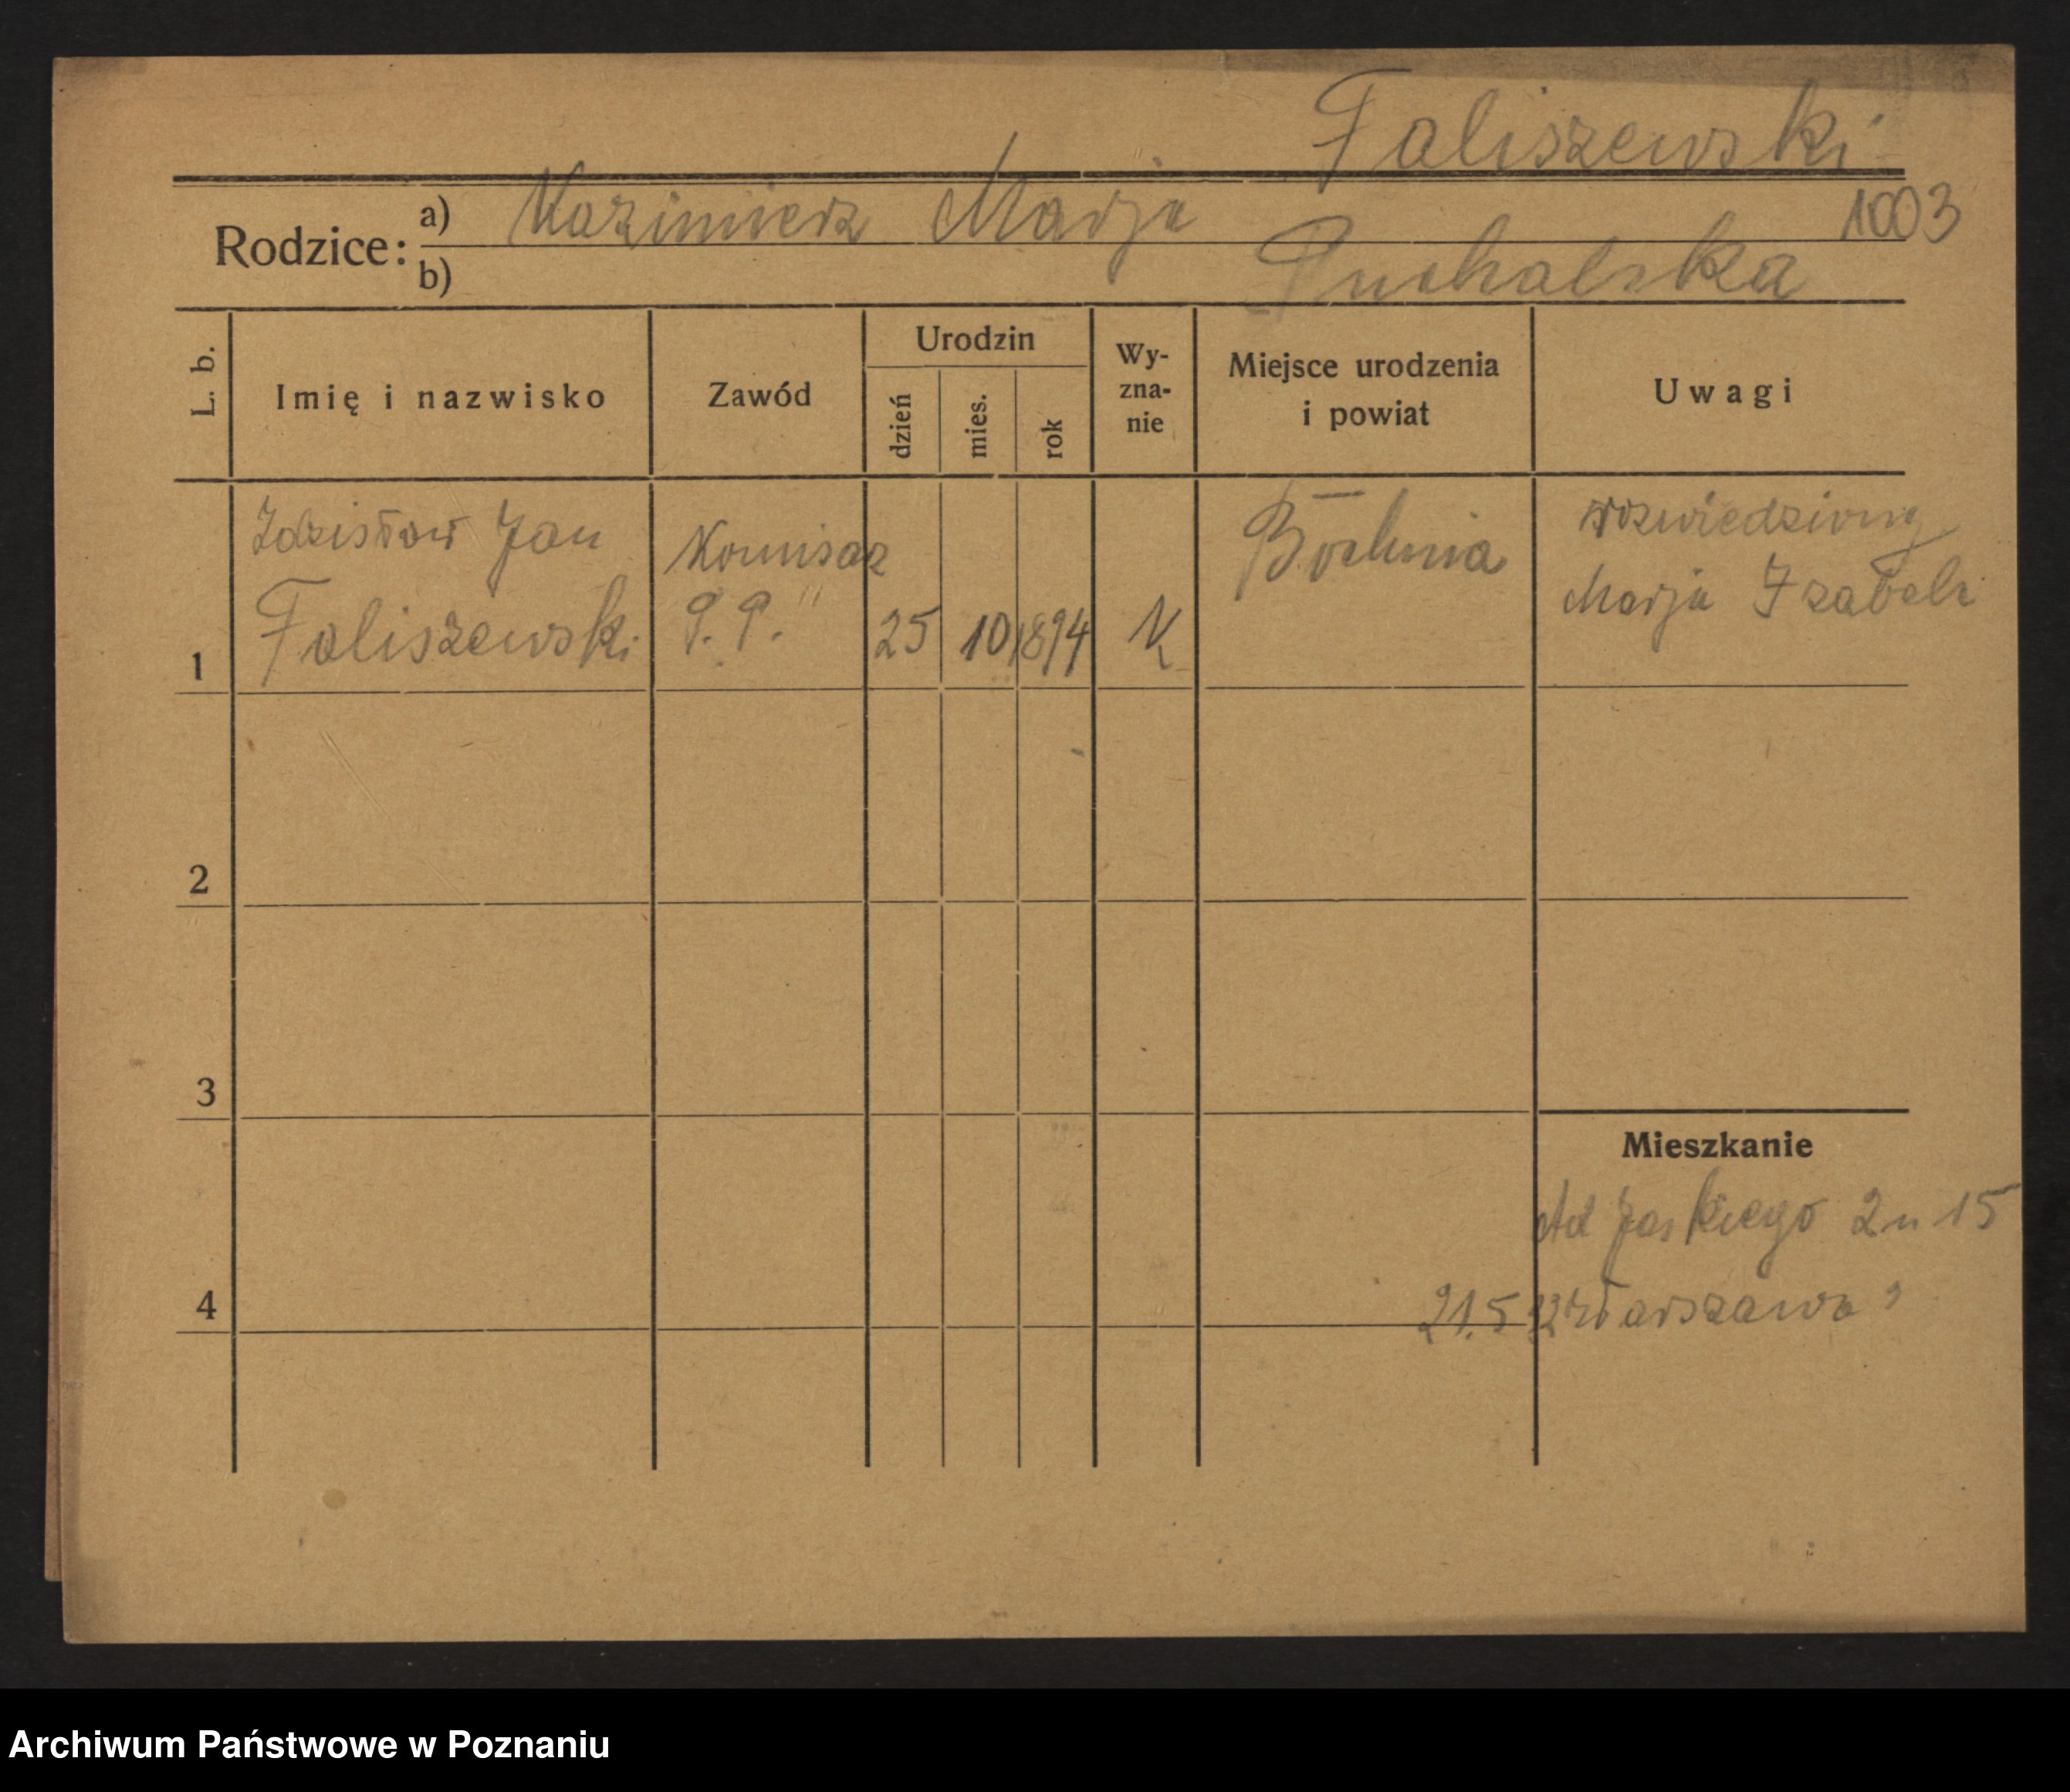 Faliszewski
Rodzice: a) Kazimierz Marja 1003
b) Puchalska
L. b. Imię i nazwisko Zawód Urodzin dzień mies. rok Wy-zna-nie Miejsce urodzenia i powiat Uwagi
Zdzisław Jan Komisarz Bochnia rozwiedziony
1 Faliszewski P. P. 25 10 1894 K Marja Izabela
2
3
Mieszkanie
15
4 21.5 32 Warszawa
Archiwum Państwowe w Poznaniu